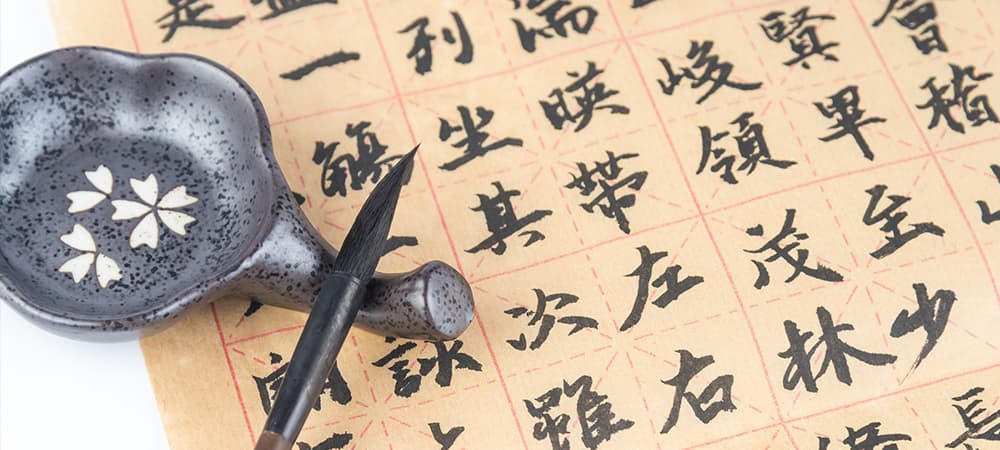 會稽
賢畢至少長
峻領茂林脩
湍映帶左右
列坐其次雖
盛一觴一詠
是